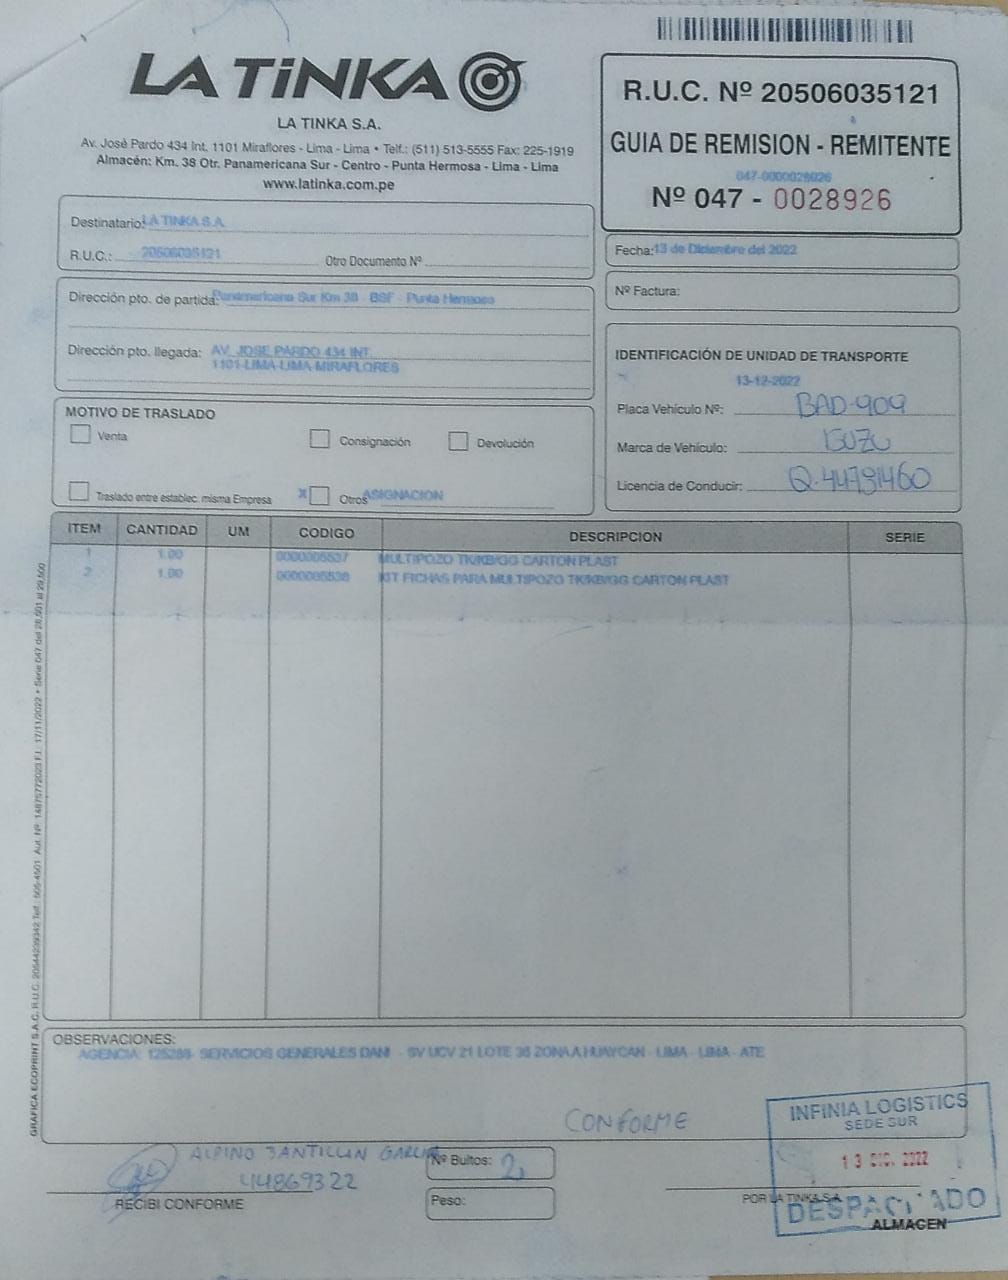 LA TiNKA
LA TINKA S.A.
Av. José Pardo 434 Int. 1101 Miraflores - Lima - Lima • Telf.: (511) 513-5555 Fax: 225-1919
Almacén: Km. 38 Otr. Panamericana Sur - Centro - Punta Hermosa - Lima - Lima
www.latinka.com.pe
R.U.C. Nº 20506035121
GUIA DE REMISION - REMITENTE
047-0000028926
Nº 047 - 0028926
Destinatario: LA TINKA S.A.
R.U.C.: 20506035121 Otro Documento Nº
Fecha: 13 de Diciembre del 2022
Nº Factura:
Dirección pto. de partida: Panamericana Sur Km 38 - BSF - Punta Hermosa
Dirección pto. llegada: AV. JOSE PARDO 434 INT.
1101-LIMA-LIMA-MIRAFLORES
IDENTIFICACIÓN DE UNIDAD DE TRANSPORTE
13-12-2022
Placa Vehículo Nº: BAD-909
Marca de Vehículo: ISUZU
Licencia de Conducir: Q.44791460
MOTIVO DE TRASLADO
Venta Consignación Devolución
Traslado entre establec. misma Empresa X Otros ASIGNACION
ITEM CANTIDAD UM CODIGO DESCRIPCION SERIE
1 1.00 0000005537 MULTIPOZO TK/KB/GG CARTON PLAST
2 1.00 0000005538 KIT FICHAS PARA MULTIPOZO TK/KB/GG CARTON PLAST
GRAFICA ECOPRINT S.A.C. R.U.C. 20544239342 Telf.: 505-4501 Aut. Nº: 14875772023 F.I.: 17/11/2022 • Serie 047 del 28,501 al 29,500
OBSERVACIONES:
AGENCIA: 125288- SERVICIOS GENERALES DANI - SV UCV 21 LOTE 35 ZONA A HUAYCAN - LIMA - LIMA - ATE
CONFORME
INFINIA LOGISTICS
SEDE SUR
13 DIC. 2022
DESPACHADO
ALPINO SANTILLAN GARCIA
44869322
RECIBI CONFORME
Nº Bultos: 2
Peso:
POR LA TINKA S.A.
ALMACEN